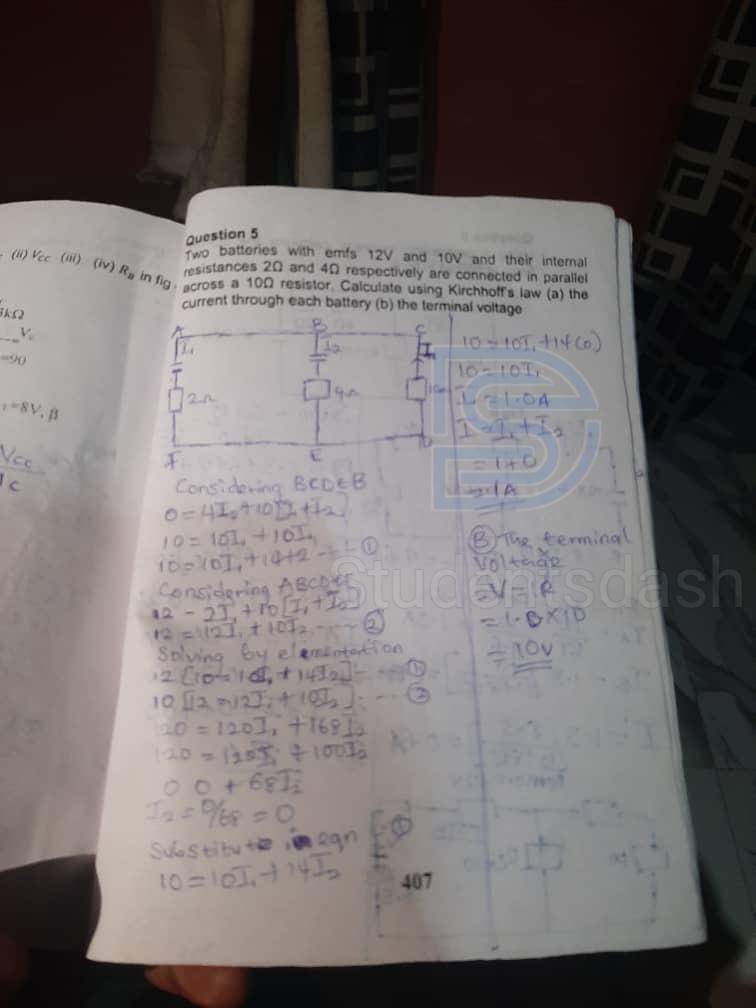 (ii) Vcc (iii) (iv) RB in fig.
3kΩ
Vc
=90
=8V, β
Vcc
Ic
Question 5
Two batteries with emfs 12V and 10V and their internal
resistances 2Ω and 4Ω respectively are connected in parallel
across a 10Ω resistor. Calculate using Kirchhoff's law (a) the
current through each battery (b) the terminal voltage
A B C
I1 I2
2Ω 4Ω
F E D
Considering BCDEB
0=4I2+10[I1+I2]
10 = 10I1 + 10I1
10=10I1+14+2 --- ①
Considering ABCDEF
12 - 2I1+10[I1+I2]
12 = 12I1 + 10I2 --- ②
Solving by elementation
12[10=10I1+14I2] --- ①
10[12=12I1+10I2] --- ②
120 = 120I1 + 168I2
120 = 120I1 + 100I2
0 0 + 68I2
I2 = 0/68 = 0
Substitute in eqn ①
10=10I1+14I2
10=10I1+14(0)
10=10I1
I1=1.0A
I=I1+I2
=1+0
=1A
Ⓑ The terminal
voltage
=V=IR
=1.0×10
=10V
407
Studentsdash